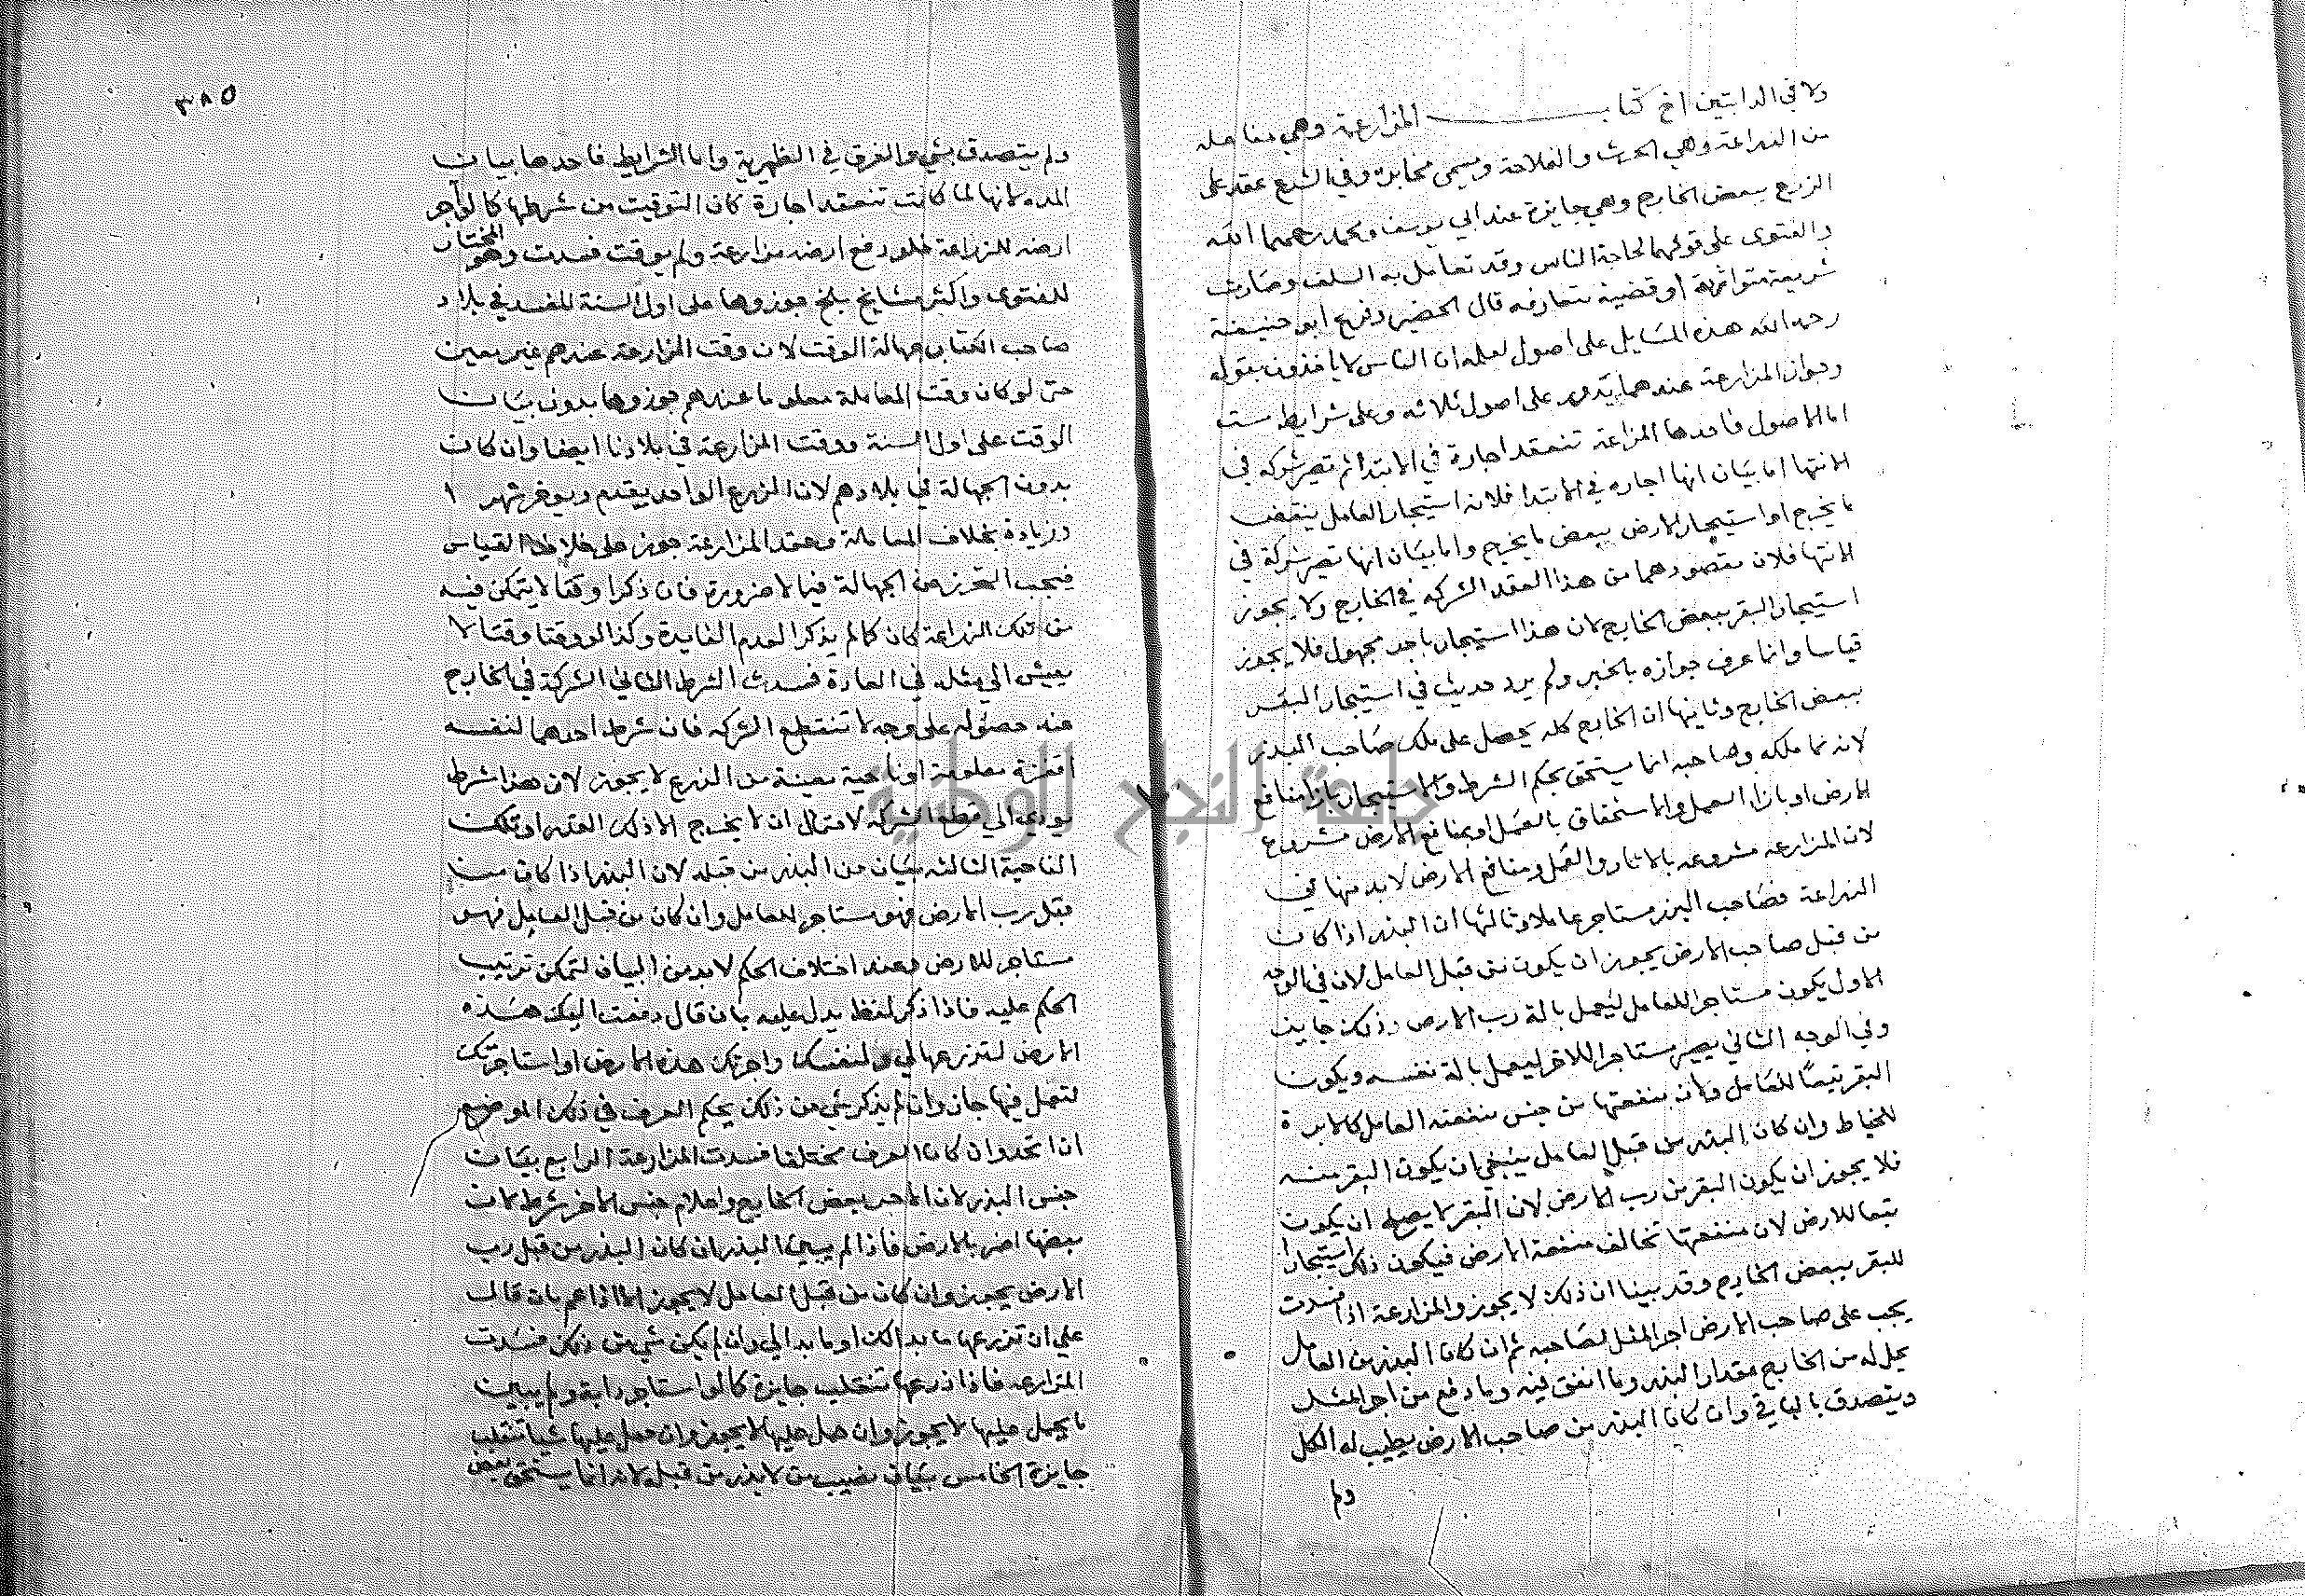 ولا في الدابتين اخ كتاب المزارعة وهي مفاعله
من الزراعة وهي الحرث والفلاحة ويسمى مخابرة وفي الشرع عقد على
الزرع ببعض الخارج وهي جايزة عند ابي يوسف ومحمد رحمهما الله
والفتوى على قولهما لحاجة الناس وقد تعامل به السلف وصارت
شريعة متوارثة او قضية متعارفه قال الحضيري وفرع ابو حنيفة
رحمه الله هذه المسايل على اصول لعلمه ان الناس لا ياخذون بقوله
وجواز المزارعة عندهما يدور على اصول ثلاثه وعلى شرايط ست
اما الاصول فاحدها المزارعة تنعقد اجارة في الابتدا ثم تصير شركه في
الانتها اما بيان انها اجاره في الابتدا فلان استيجار العامل ببعض
ما يخرج او استيجار الارض ببعض ما يخرج واما بيان انها تصير شركة في
الانتها فلان مقصودهما من هذا العقد الشركه في الخارج ولا يجوز
استيجار البقر ببعض الخارج لان هذا استيجار باجر مجهول فلا يجوز
قياسا وانما عرف جوازه بالخبر ولم يرد حديث في استيجار البقر
ببعض الخارج وثانيها ان الخارج كله يحصل على ملك صاحب البذر
لانه نما ملكه وصاحبه انما يستحق بحكم الشرط والاستيجار بازا منافع
الارض او بازا العمل والاستحقاق بالعمل او بمنافع الارض مشروع
لان المزارعه مشروعه بالاثار والعمل ومنافع الارض لابد منها في
الزراعة فصاحب البذر مستاجر عاملا وثالثها ان البذر اذا كان
من قبل صاحب الارض يجوز ان يكون من قبل العامل لان في الوجه
الاول يكون مستاجرا للعامل ليعمل بالة رب الارض وذلك جايز
وفي الوجه الثاني يصير مستاجرا للاخر ليعمل بالة نفسه ويكون
البقر تبعا للعامل ولان منفعتها من جنس منفعته العامل كالابرة
للخياط وان كان البذر من قبل العامل ينبغي ان يكون البقر منه
فلا يجوز ان يكون البقر من رب الارض لان البقر لا يصلح ان يكون
تبعا للارض لان منفعتها تخالف منفعة الارض فيكون ذلك استيجارا
للبقر ببعض الخارج وقد بينا ان ذلك لا يجوز والمزارعة اذا فسدت
يجب على صاحب الارض اجر المثل لصاحبه ثم ان كان البذر من العامل
يحل له من الخارج مقدار البذر وما انفق فيه وما دفع من اجر المثل
ويتصدق بالباقي وان كان البذر من صاحب الارض يطيب له الكل
ولم
٣٨٥
ولم يتصدق بشي والفرق في الظهيرية واما الشرايط فاحدها بيان
المده لانها لما كانت تنعقد اجارة كان التوقيت من شرطها كالو آجر
ارضه للزراعة فلو دفع ارضه مزارعة ولم يوقت فسدت وهو المختار
للفتوى واكثر مشايخ بلخ جوزوها على اول السنة للمفسد في بلاد
صاحب الكتاب جهالة الوقت لان وقت المزارعة عندهم غير معين
حتى لو كان وقت المعاملة معلوما عندهم جوزوها بدون بيان
الوقت على اول السنة ووقت المزارعة في بلادنا ايضا وان كان
بدون الجهالة في بلادهم لان الزرع الواحد يقدم ويوخر شهرا
وزيادة بخلاف المعاملة وعقد المزارعة جوز على خلاف القياس
فيجب التحرز عن الجهالة فيما لا ضرورة فان ذكرا وقتا لا يتمكن فيه
من تلك الزراعة كان كما لم يذكر العدم الفايدة وكذا لو وقتا وقتا لا
يعيش الى مثله في العادة فسدت الشرط الثاني الشركة في الخارج
عند حصوله على وجه لا تنقطع الشركه فان شرط احدهما لنفسه
اقفزة معلومة او ناحية معينة من الزرع لا يجوز لان هذا شرط
يودي الى قطع الشركه لاحتمال ان لا يخرج الا ذلك القدر او تلك
الناحية الثالثه بيان من البذر من قبله لان البذر اذا كان من
قبل رب الارض فهو مستاجر للعامل وان كان من قبل العامل فهو
مستاجر للارض وعند اختلاف الحكم لابد من البيان لتمكن ترتيب
الحكم عليه فاذا ذكر لفظا يدل عليه بان قال دفعت اليك هذه
الارض لتزرعها لي ولنفسك واجرتك هذه الارض او استاجرتك
لتعمل فيها جاز وان لم يذكر شي من ذلك يحكم العرف في ذلك الموضع
ان اتحد وان كان العرف مختلفا فسدت المزارعة الرابع بيان
جنس البذر لان الاجر ببعض الخارج واعلام جنس الاجر شرط لان
بعضها اضر بالارض فاذا لم يبين البذر ان كان البذر من قبل رب
الارض يجوز وان كان من قبل العامل لا يجوز الا اذا عمم بان قال
على ان تزرعها ما بدالك او ما بدالي وان لم يكن شي من ذلك فسدت
المزارعه فاذا زرعها تنقلب جايزة كالو استاجر دابة ولم يبين
ما يحمل عليها لا يجوز وان حمل عليها لا يجوز وان حمل عليها شيا تنقلب
جايزة الخامس بيان نصيب من لا بذر من قبله لانه انما يستحق بعض
جامعة النجاح الوطنية